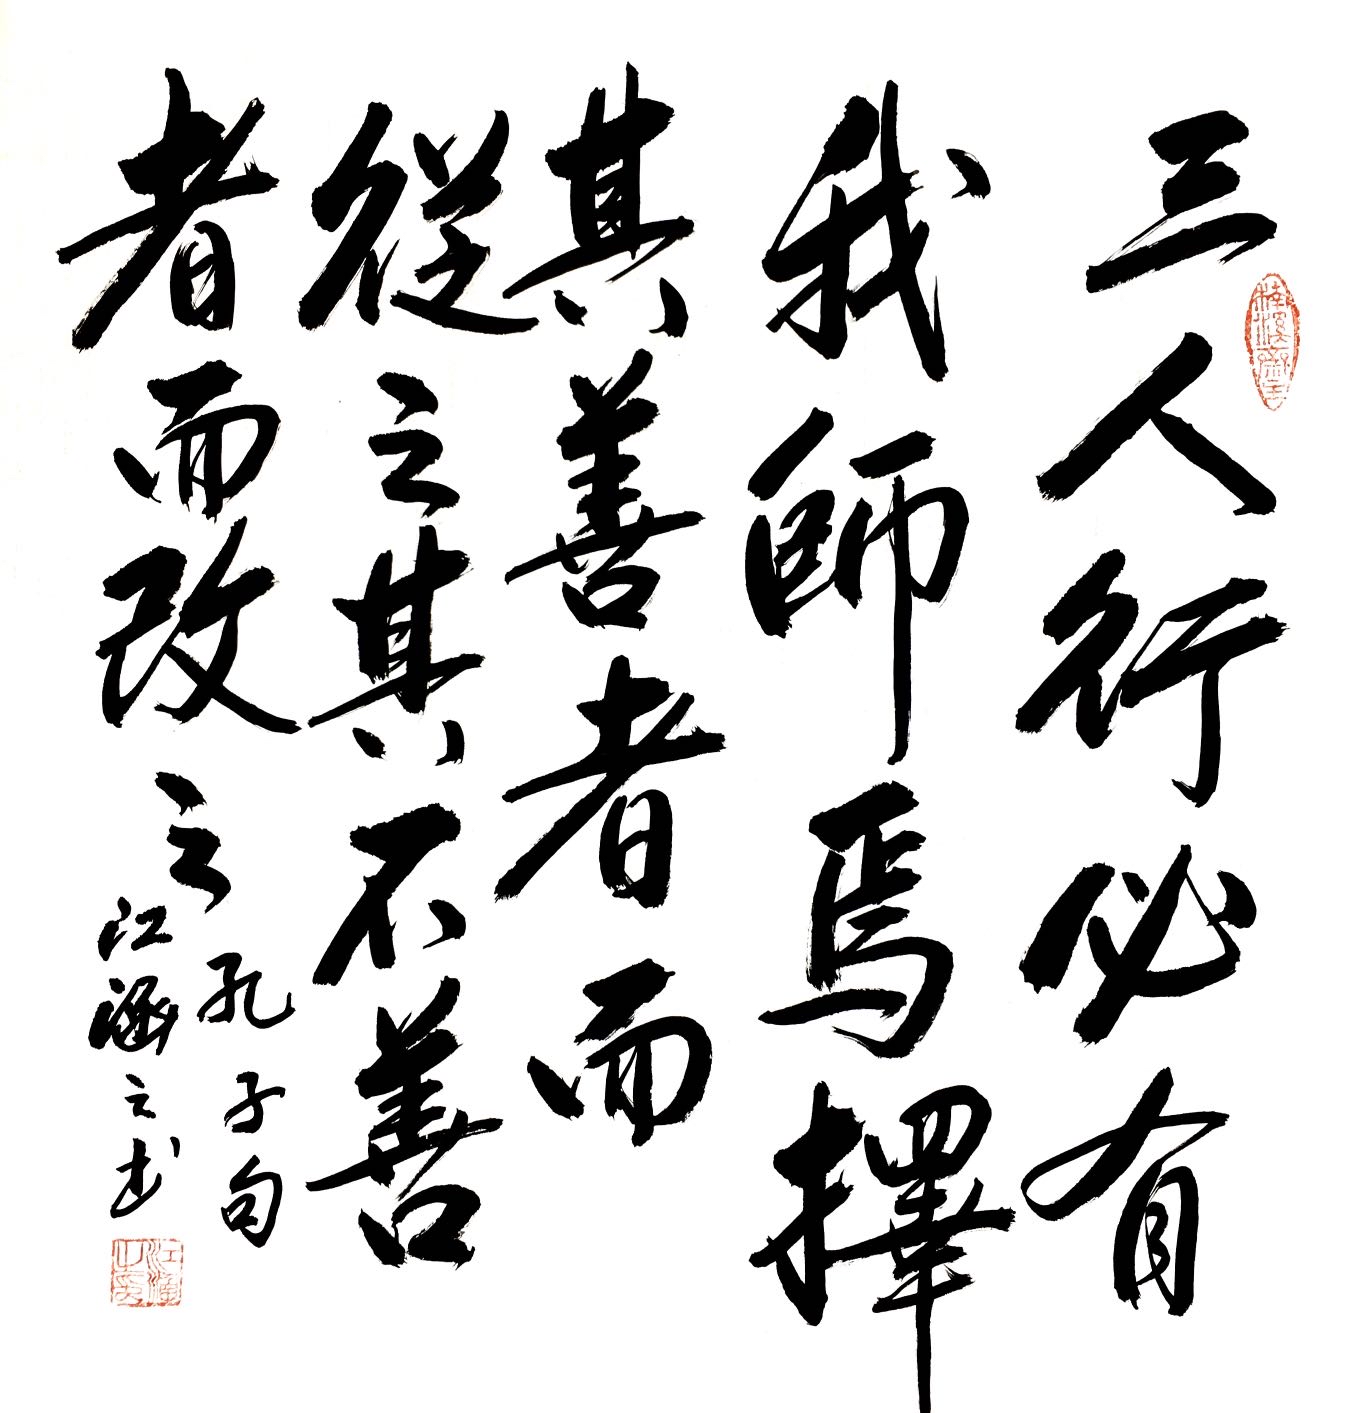 三人行必有
我師焉擇
其善者而
從之其不善
者而改之
孔子句
江涵之书
江涵之印